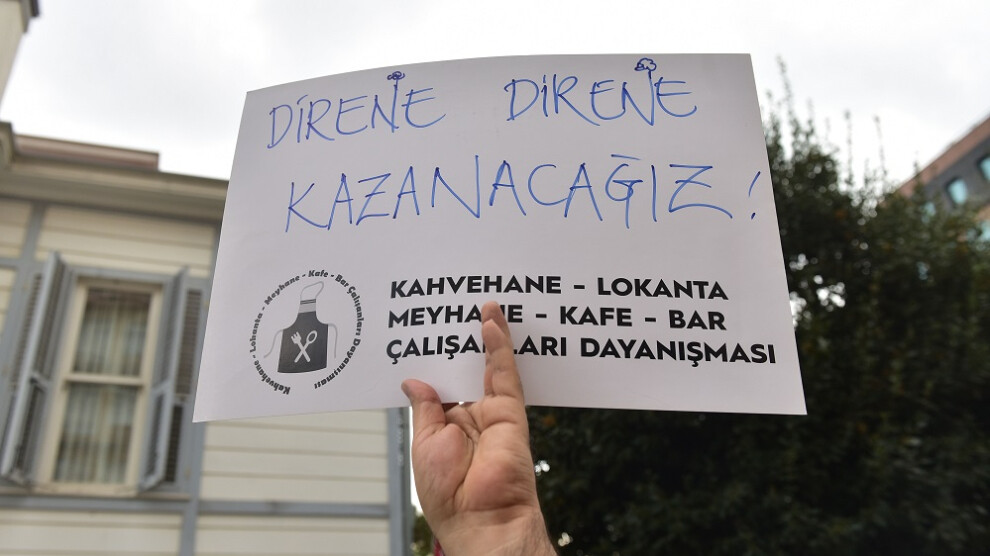 DİRENE DİRENE
KAZANACAĞIZ!
KAHVEHANE - LOKANTA
MEYHANE - KAFE - BAR
ÇALIŞANLARI DAYANIŞMASI
Kahvehane - Lokanta - Meyhane - Kafe - Bar Çalışanları Dayanışması